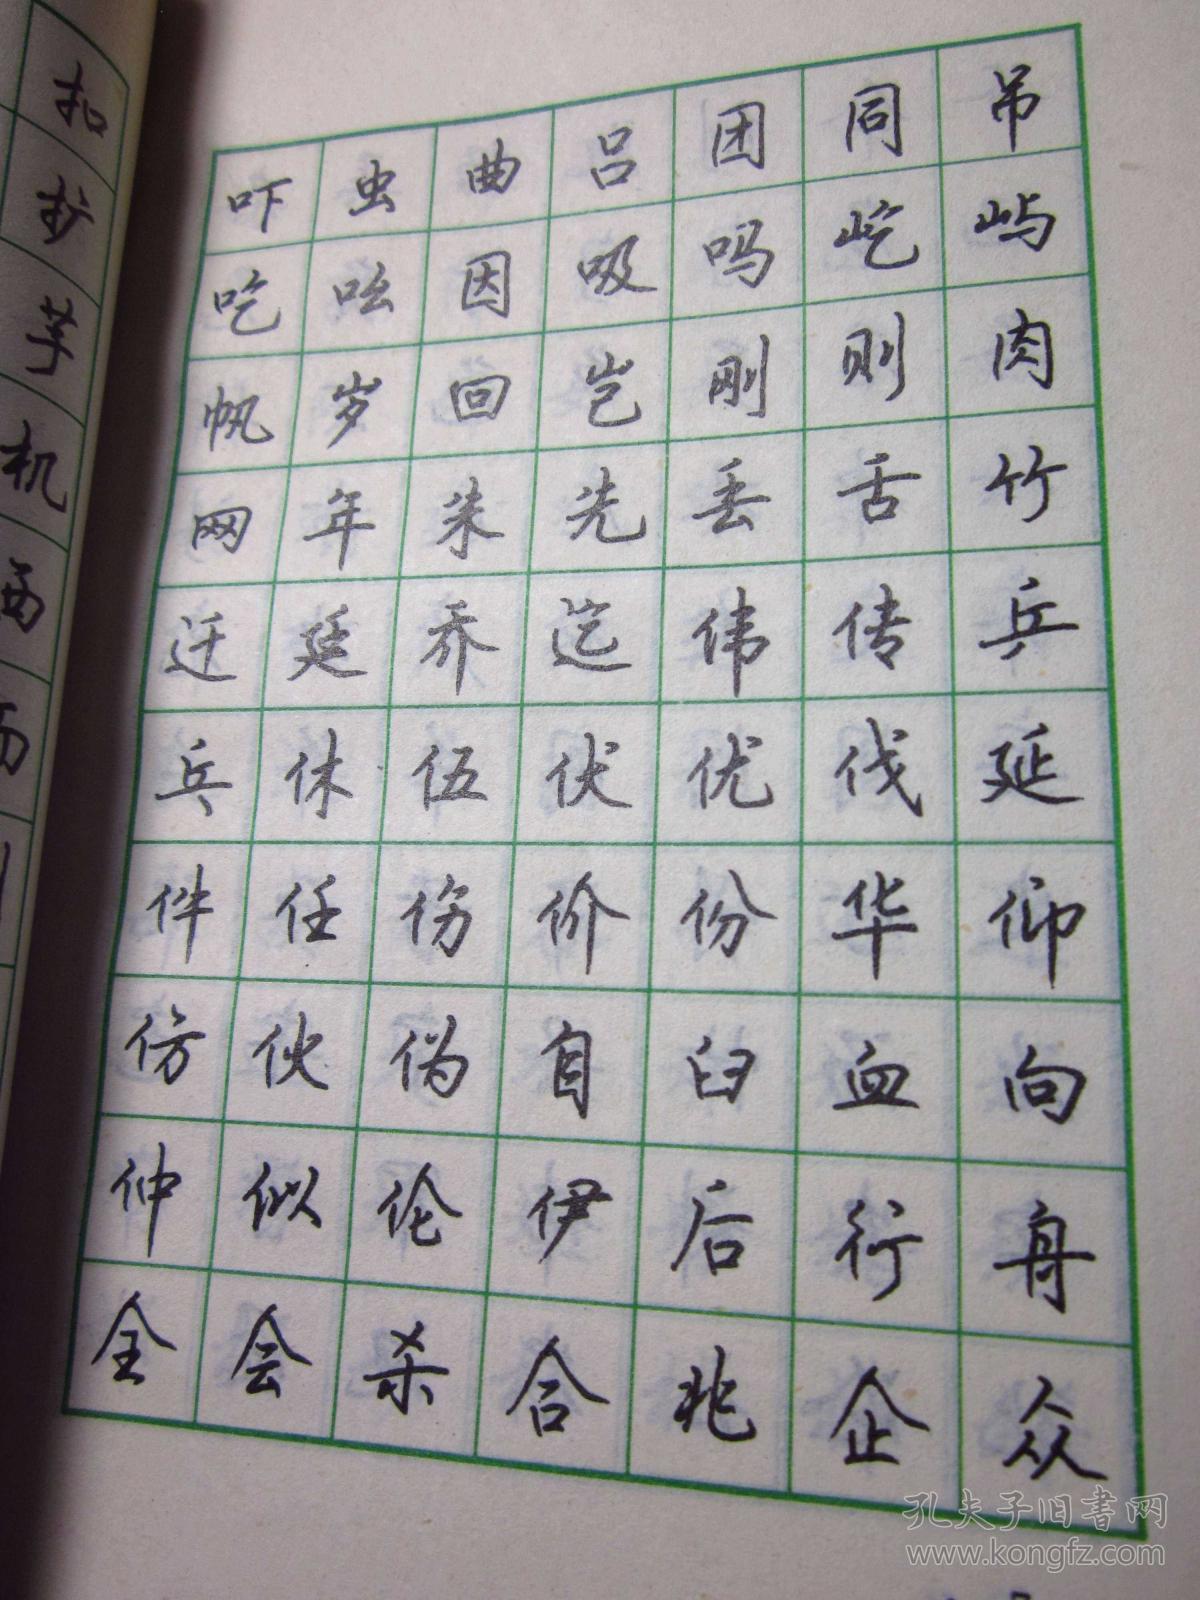 扣
扩
芋
机
吓 虫 曲 吕 团 同 吊
吃 吆 因 吸 吗 屹 屿
帆 岁 回 岂 刚 则 肉
网 年 朱 先 丢 舌 竹
迁 廷 乔 迄 伟 传 乒
乓 休 伍 伏 优 伐 延
件 任 伤 价 份 华 仰
仿 伙 伪 自 臼 血 向
仲 似 伦 伊 后 行 舟
全 会 杀 合 兆 企 众
孔夫子旧书网
www.kongfz.com